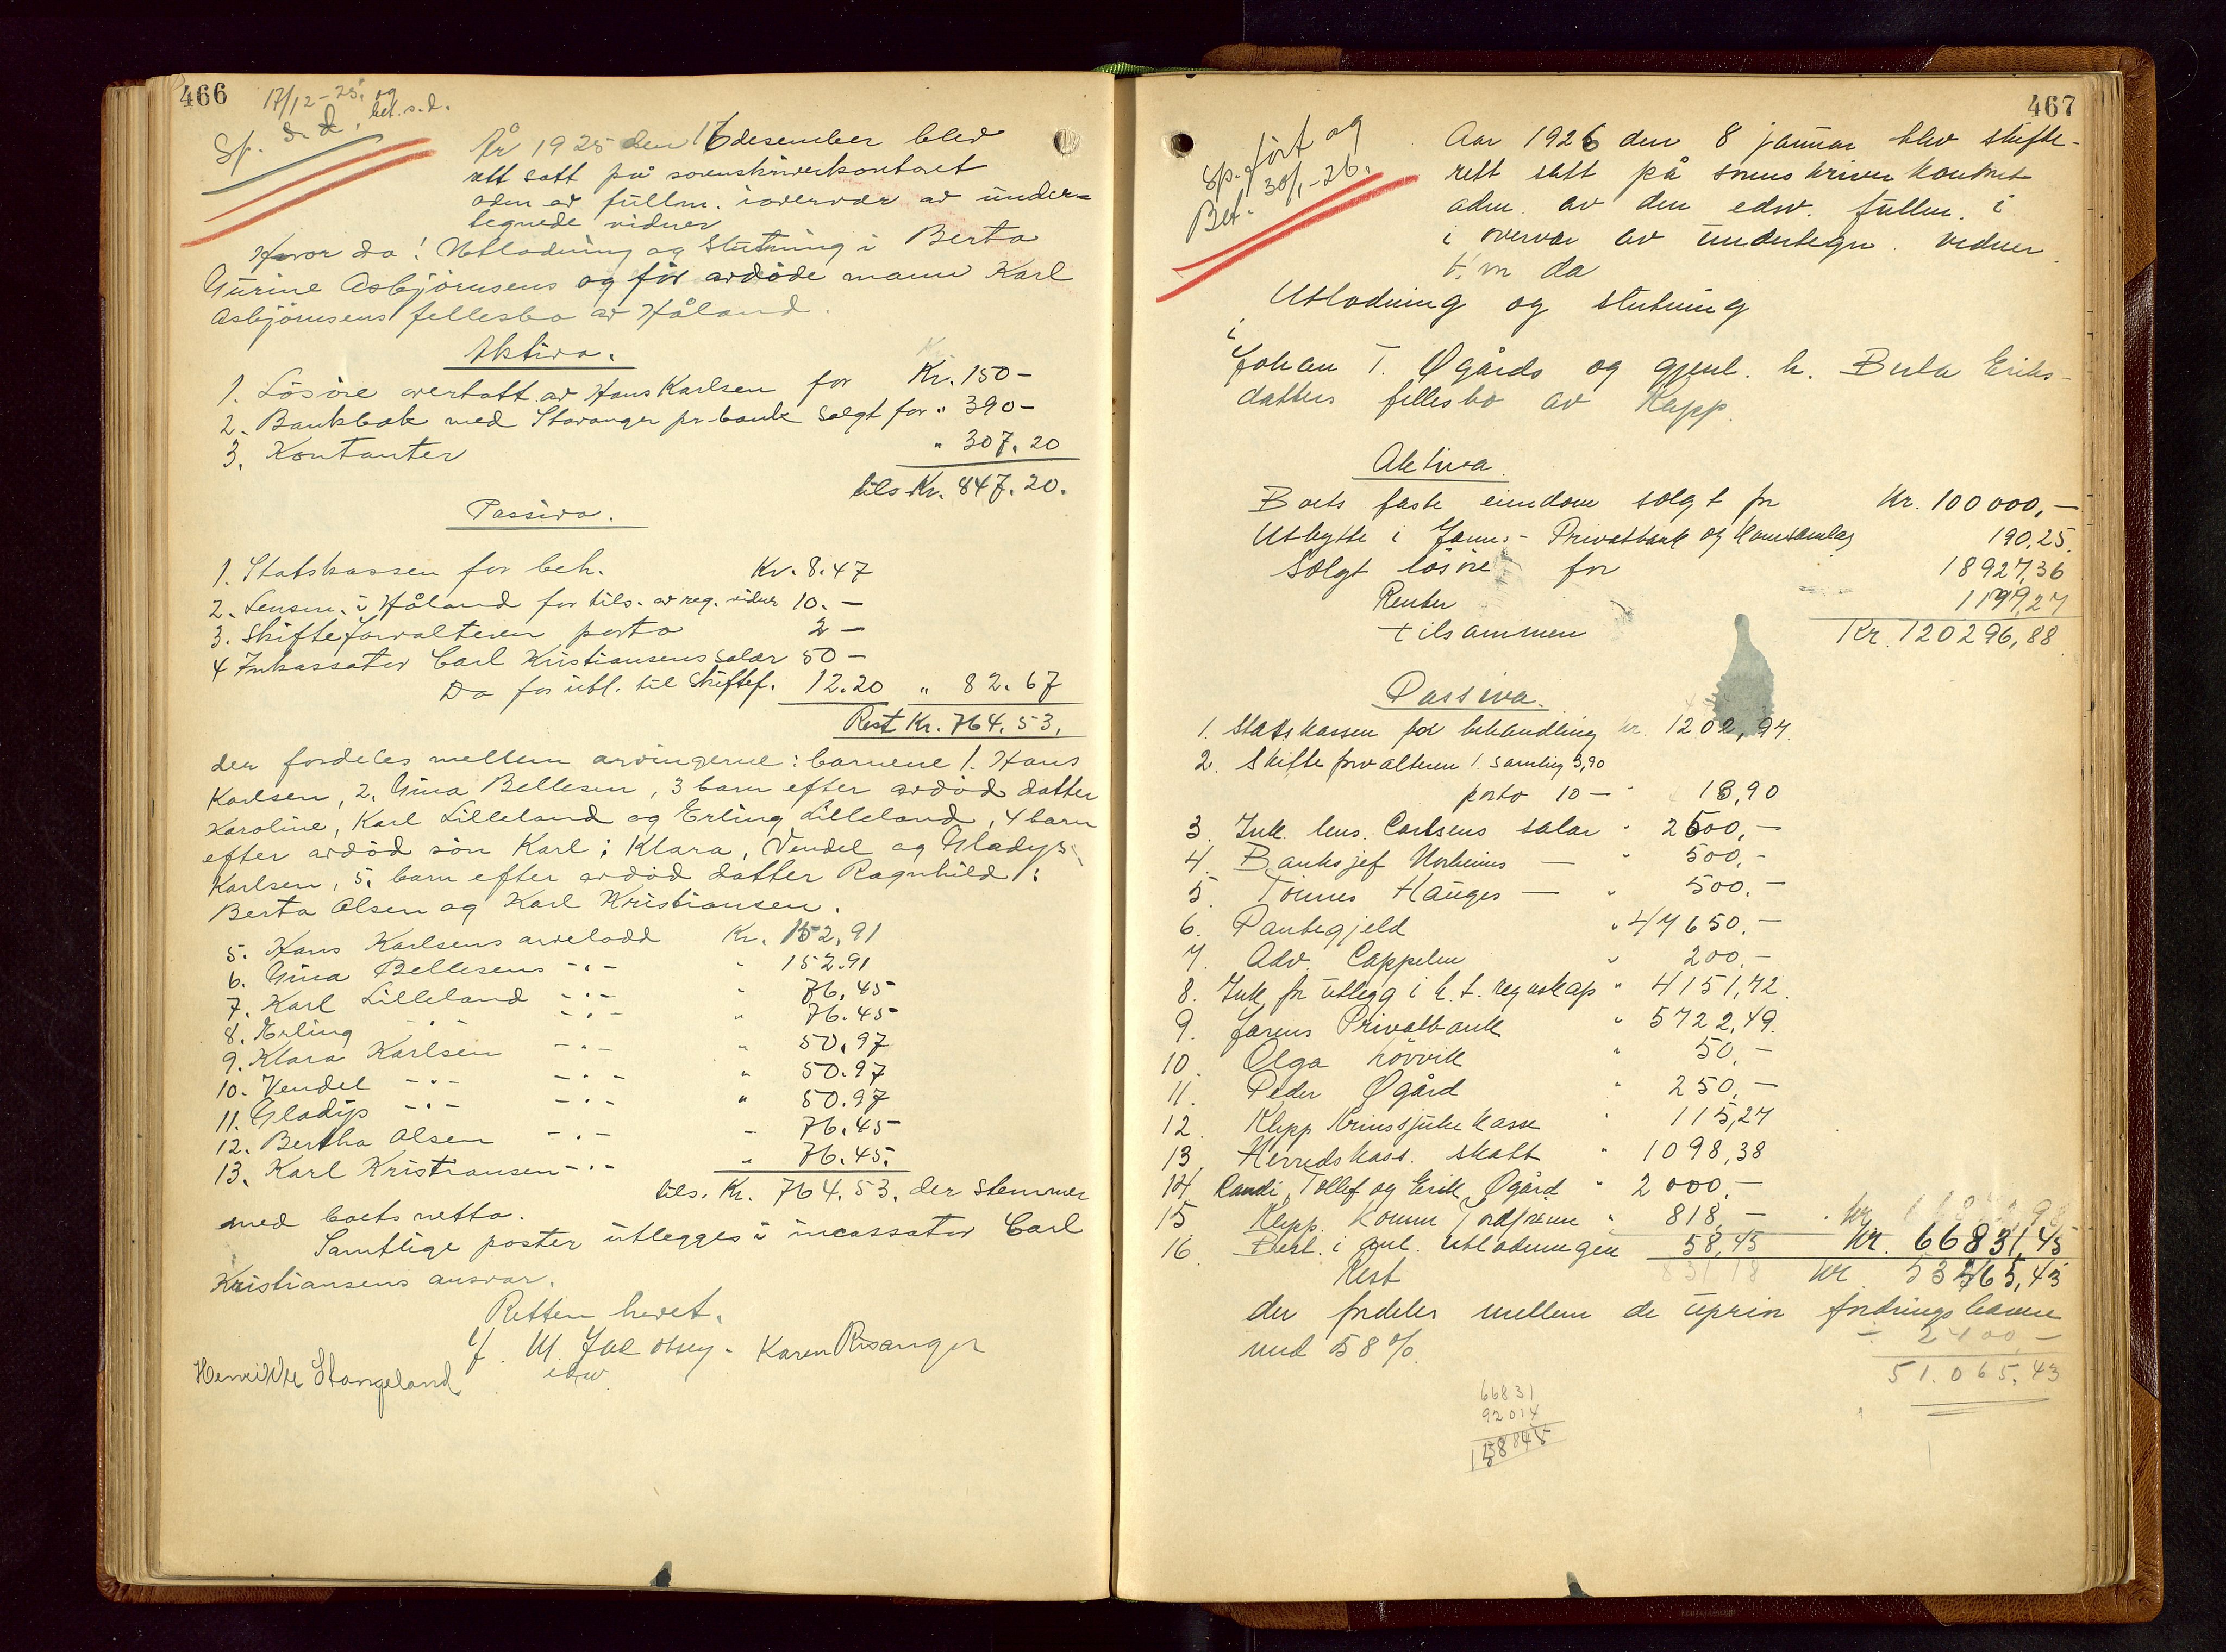 466
17/12-25. og
Sp. s. d. bet. s. d.
År 1925 den 17 desember blev
rett satt på sorenskriverkontoret
adm av fullm. i overvær av under-
tegnede vidner
Hvor da: Utlodning og Slutning i Berta
Gurine Asbjörnsens og för avdöde mann Karl
Asbjörnsens fellesbo av Håland.
Aktiva.
1. Lösöre overtatt av Hans Karlsen for Kr. 150-
2. Bankbok med Stavanger pr. bank solgt for " 390-
3. Kontanter " 307.20
tils Kr. 847.20.
Passiva.
1. Statskassen for beh. Kr. 8.47
2. Lensm. i Håland for tils. av reg. vidner 10.-
3. Skifteforvalteren porto 2-
4 Inkassator Carl Kristiansens salær 50-
Do for utl. til Skiftef. 12.20 " 82.67
Rest Kr. 764.53.
der fordeles mellem arvingerne: barnene 1. Hans
Karlsen, 2. Gina Bellesen, 3 barn efter avdöd datter
Karoline, Karl Lilleland og Erling Lilleland, 4 barn
efter avdöd sön Karl: Klara, Vendel og Gladys
Karlsen, 5. barn efter avdöd datter Ragnhild:
Berta Olsen og Karl Kristiansen.
5. Hans Karlsens arvelodd Kr. 152,91
6. Gina Bellesens -"- " 152.91
7. Karl Lilleland -"- " 76.45
8. Erling " -"- " 76.45
9. Klara Karlsen -"- " 50.97
10. Vendel -"- -"- " 50.97
11. Gladys -"- -"- " 50.97
12. Bertha Olsen -"- " 76.45
13. Karl Kristiansen -"- " 76.45.
tils. Kr. 764.53. der stemmer
med boets netto.
Samtlige poster utlegges i incassator Carl
Kristiansens ansvar.
Retten hevet.
M. Karen Risanger
Henrikke Stangeland edsv
467
Sp. fört og
Bet. 30/1-26.
Aar 1926 den 8 januar blev skifte-
rett satt på sorenskriverkontoret
adm. av den edsv. fullm. i
i overvær av undertegn. vidner.
Hvor da
Utlodning og slutning
i
Johan T. Øgårds og gjenl. h. Berta Eriks-
datters fellesbo av Klepp.
Aktiva.
Boets faste eiendom solgt for Kr. 100 000,-
Utbytte i Jærens Privatbank og 190,25.
Solgt lösöre for 18927,36
Renter 1179,27
tilsammen Kr. 120296,88
Passiva.
1. Statskassen for behandling kr. 1202,94.
2. Skifteforvalteren 1. samling 3,90
porto 10- " 13,90
3. Ink. lens. Carlsens salær " 2500,-
4. Banksjef Norheims - " 500,-
5. Tönnes Hauges - " 500,-
6. Pantegjeld " 47650.-
7. Adv. Cappelen " 200.-
8. Ink. for utlegg i h. t. regnskap " 4151,72.
9. Jærens Privatbank " 5722,49.
10. Olga Hövvik " 50,-
11. Peder Øgård " 250,-
12. Klepp Krinssjukekasse " 115,27
13. Herredskass. skatt " 1098,38
14. Randi, Tollef og Erik Øgård " 2000,-
15. Klepp. Komm " 818,-
16. Best. i anl. utlodningen 58,45 Kr. 66831,45
Rest kr. 53465,43
der fordeles mellem de uprior fordringshavere
med 58%.
÷ 2400-
51.065,43
66831
92014
158845